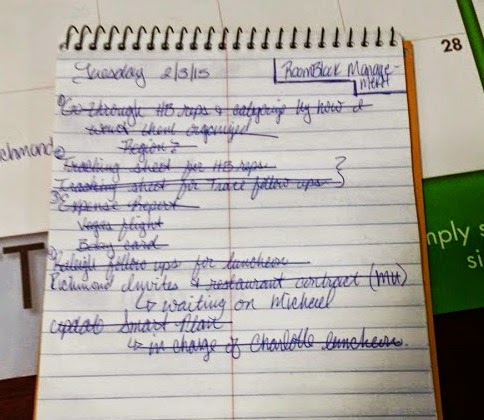 28
Tuesday 2/3/15
RoomBlock Manage-
ment
Go through HB reps & categorize by how I
want them organized
Region?
Tracking sheet for HB reps
Tracking sheet for Trace follow ups
Expense Report
Vegas flight
Baby card
Raleigh follow ups for luncheon
Richmond Invites & restaurant contract (MH)
↳ waiting on Michael
update Smart Plan
↳ in charge of Charlotte luncheon.
chmond
T
mply s
si